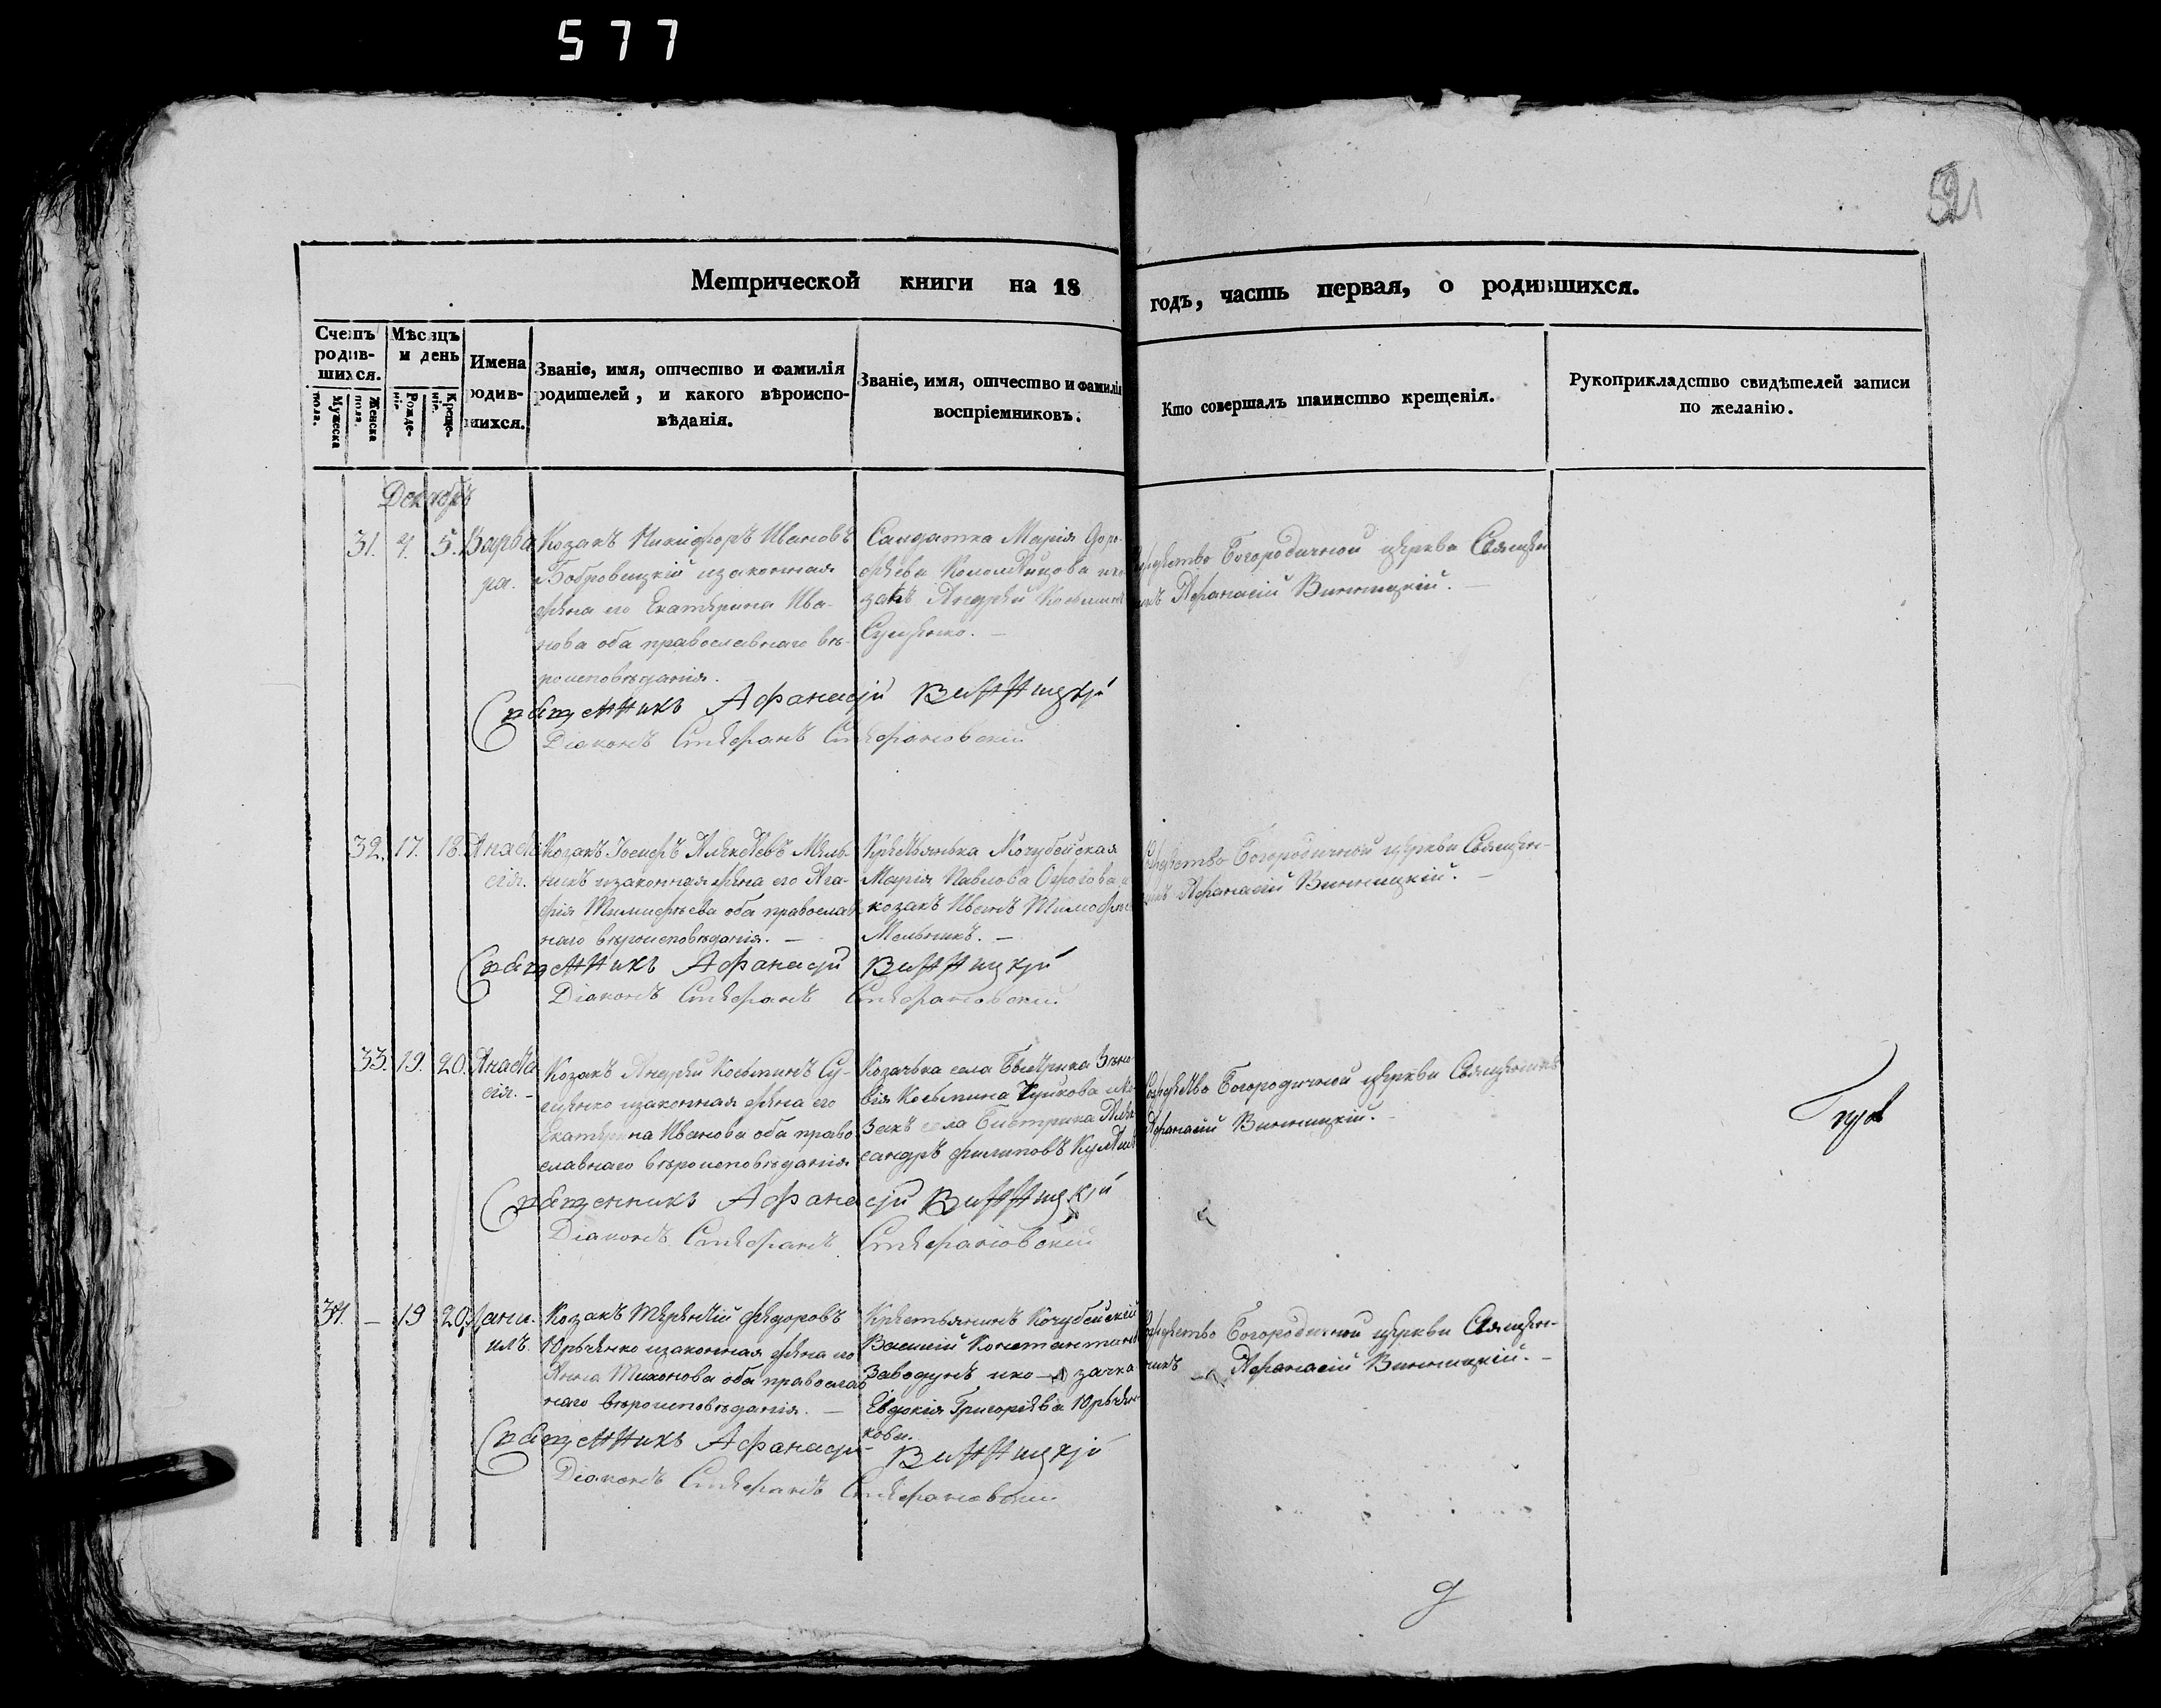 577
521
Метрической книги на 18 годъ, часть первая, о родившихся.
Счетъ родив-шихся.
Мужеска пола.
Женска пола.
Мѣсяцъ и день
Рожде-нія.
Креще-нія.
Имена родив-шихся.
Званіе, имя, отчество и фамилія
родителей, и какого вѣроиспо-
вѣданія.
Званіе, имя, отчество и фамилія
воспріемниковъ.
Кто совершалъ таинство крещенія.
Рукоприкладство свидѣтелей записи
по желанію.
Декабрь
31. 4. 5. Варва-
ра.
Козакъ Никифоръ Ивановъ
Бобровицкій изаконная
жена его Екатерина Ива-
нова оба православнаго вѣ-
роисповѣданія.
Салдатка Марія Доро-
фѣева Коломѣйцова ико-
закъ Андрей Косминъ
Сущенко. —
Рождество Богородичной церкви Священ-
никъ Афанасій Винницкій. —
Священникъ Афанасій Винницкій
Діаконъ Стефанъ Стефановскій
32. 17. 18. Анаста-
сія.
Козакъ Іосифъ Алексѣевъ Мель-
никъ изаконная жена его Ага-
фія Тимофѣева оба православ-
наго вѣроисповѣданія. —
Крестьянка Кочубейская
Марія Павлова
козакъ Иванъ Тимофѣевъ
Мельникъ. —
Рождество Богородичной церкви Священ-
никъ Афанасій Винницкій. —
Священникъ Афанасій Винницкій
Діаконъ Стефанъ Стефановскій
33. 19. 20. Анаста-
сія. —
Козакъ Андрей Косминъ Су-
щенко изаконная жена его
Екатерина Иванова оба право-
славнаго вѣроисповѣданія.
Козачка села Быстрика Зѣно-
вія Космина Чуйкова ико-
закъ села Быстрика Алек-
сандръ Филиповъ
Рождество Богородичной церкви Священникъ
Афанасій Винницкій. —
Священникъ Афанасій Винницкій
Діаконъ Стефанъ Стефановскій
34. — 19 20. Дани-
илъ.
Козакъ Терентій Федоровъ
Юрченко изаконная жена его
Анна Тихонова оба православ-
наго вѣроисповѣданія. —
Крестьянинъ Кочубейскій
Василій Константиновъ
Заводунъ ико- зачка
Евдокія Григоріева Юрчен-
кова.
Рождество Богородичной церкви Священ-
никъ Афанасій Винницкій. —
Священникъ Афанасій Винницкій
Діаконъ Стефанъ Стефановскій